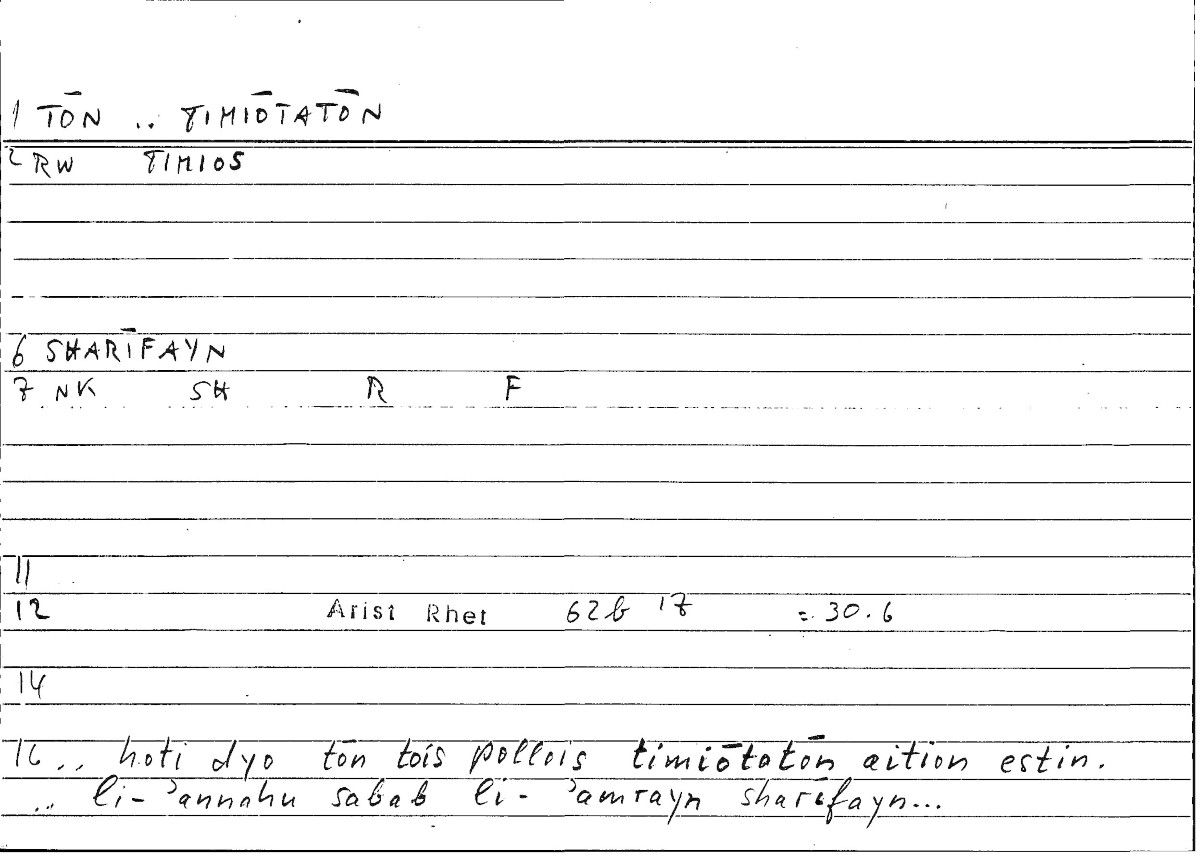 1 TŌN .. TIMIŌTATŌN
2 RW TIMIOS
6 SHARĪFAYN
7 NK SH R F
11
12 Arist Rhet 62b 17 = 30.6
14
16 .. hoti dyo tōn tois pollois timiōtatōn aition estin.
.. li-ʾannahu sabab li-ʾamrayn sharīfayn...